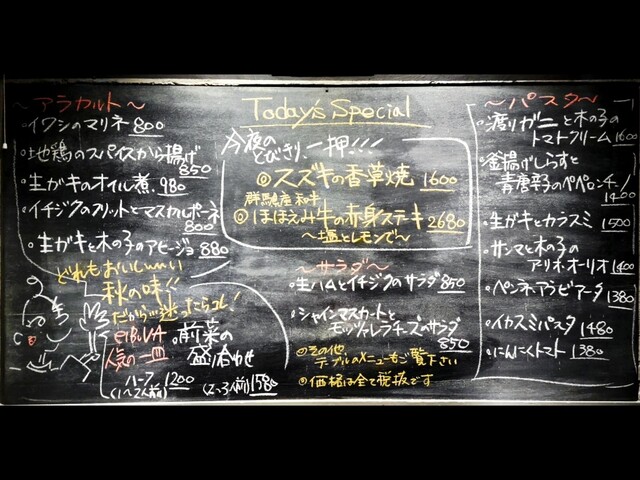 ～アラカルト～
・イワシのマリネ 800
・地鶏のスパイスから揚げ
850
・生ガキのオイル煮 980
・イチジクのフリットとマスカルポーネ
800
・生ガキと木の子のアヒージョ 880
どれもおいしいぃぃ
秋の味!!
だから…迷ったらコレ!
人気の一皿
・前菜の
盛り合わせ
ハーフ 1200
(1～2人前)
(2、3人前) 1580
Today's Special
今夜の
とびきり、一押!!!
◎スズキの香草焼 1600
群馬産和牛
◎ほほえみ牛の赤身ステーキ 2680
～塩とレモンで～
～サラダ～
・生ハムとイチジクのサラダ 850
・シャインマスカートと
モッツァレラチーズのサラダ
850
◎その他
テーブルのメニューもご覧下さい
◎価格は全て税抜です
～パスタ～
・渡りガニと木の子の
トマトクリーム 1600
・釜揚げしらすと
青唐辛子のペペロンチーノ
1400
・生ガキとカラスミ 1500
・サンマと木の子の
アーリオ・オーリオ 1400
・ペンネアラビアータ 1380
・イカスミパスタ 1480
・にんにくトマト 1380